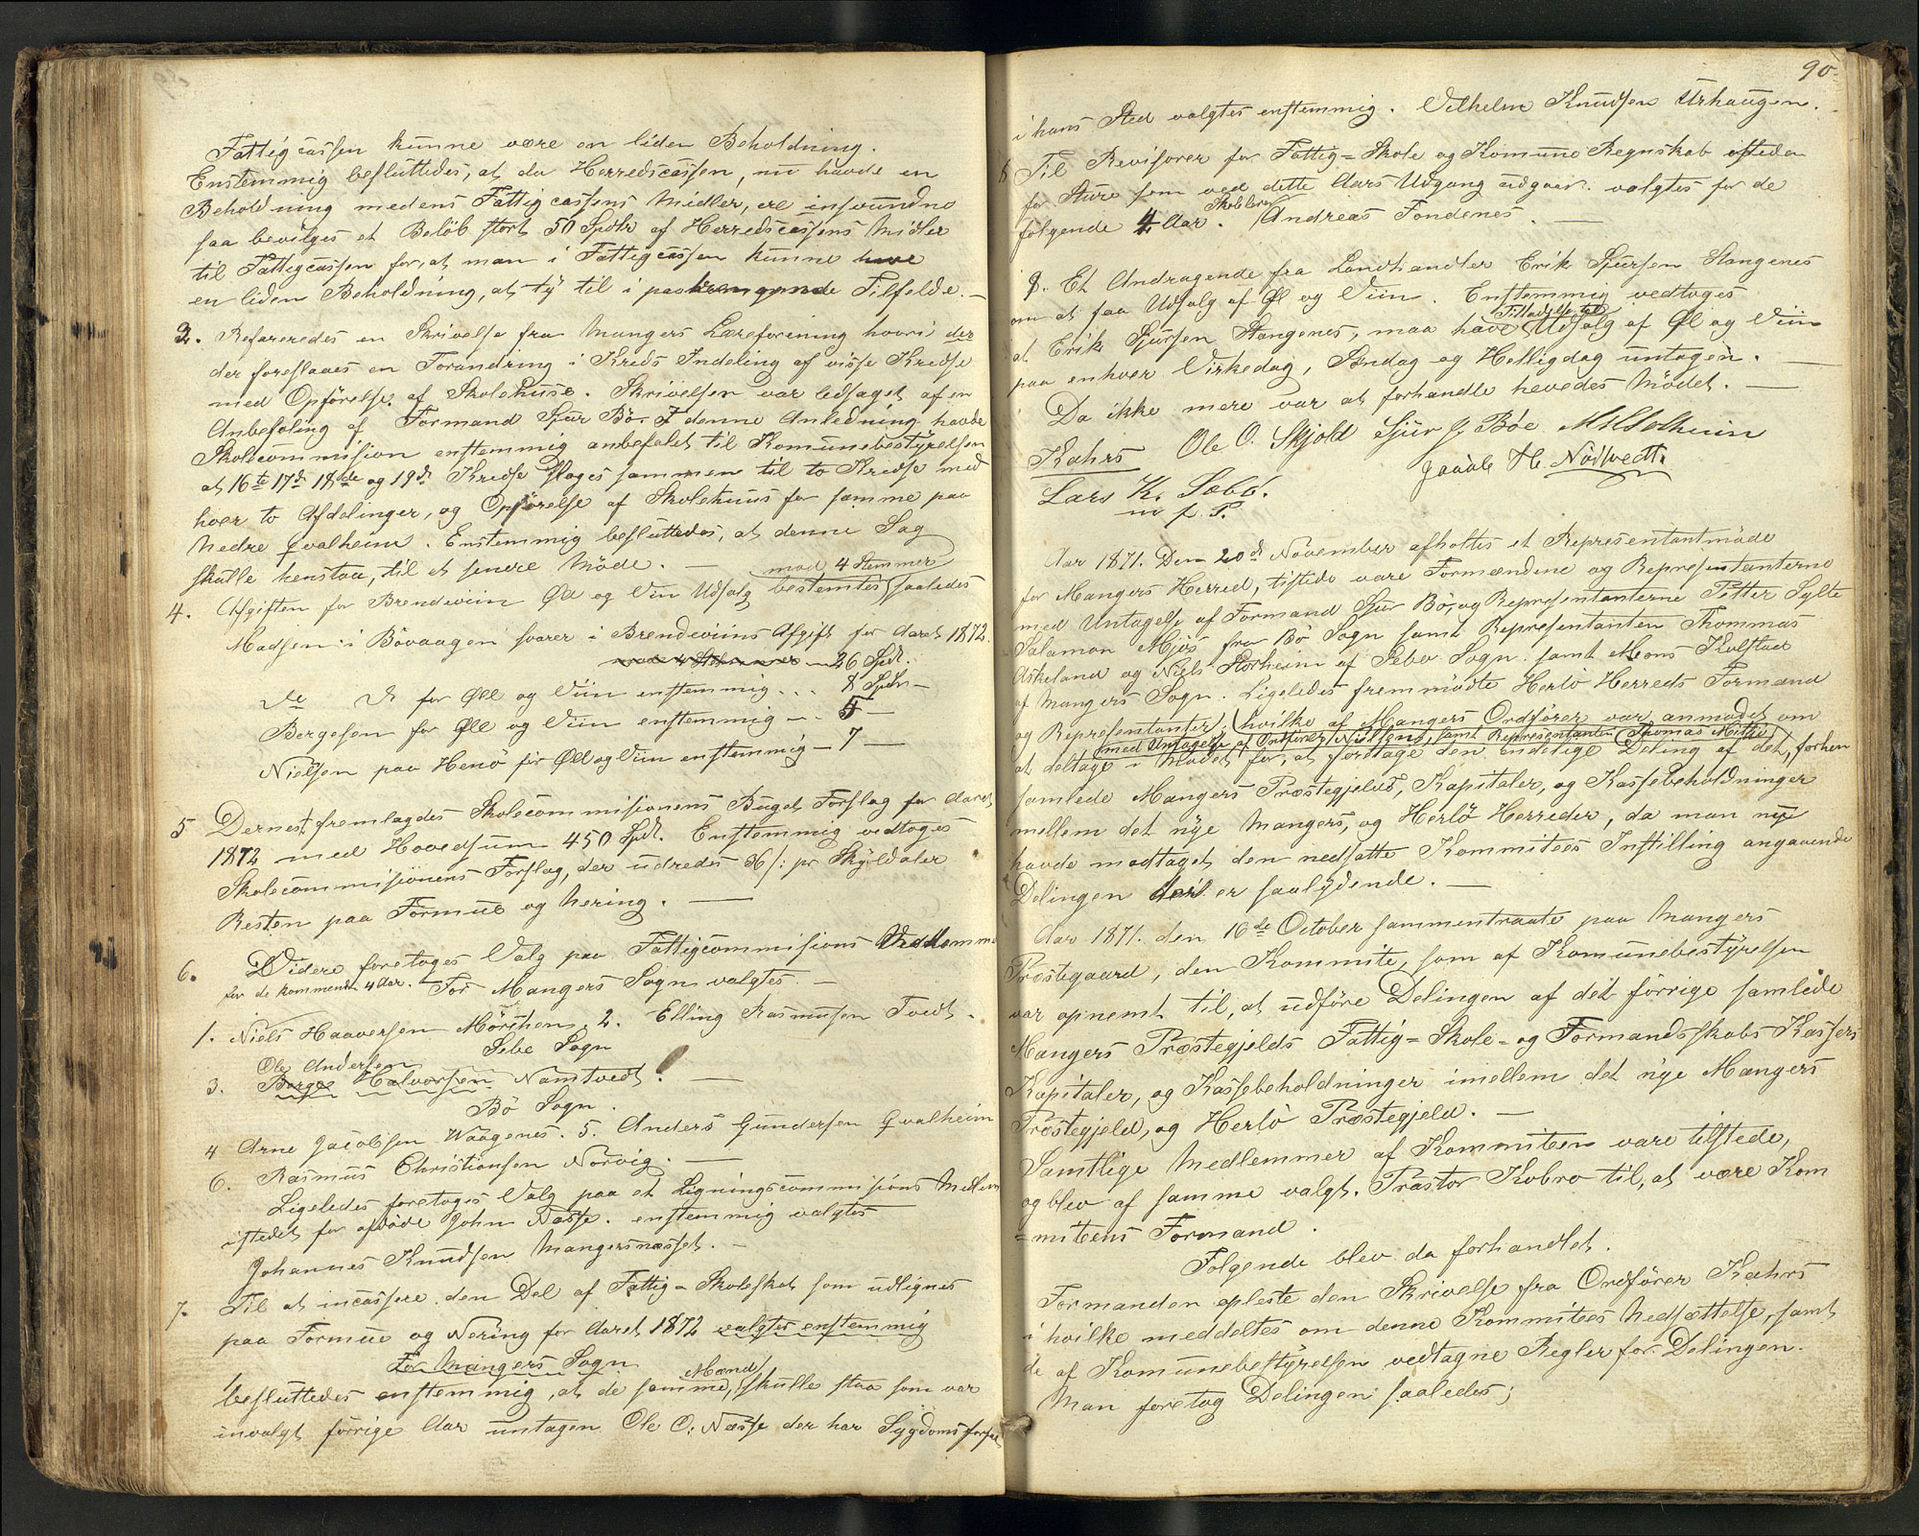 Fattigcassen kunne være en liden Beholdning.
Enstemmig besluttedes, at da Herredscassen, nu havde en
Beholdning medens Fattigcassens Midler, ere
saa bevilges et Beløb stort 50 Spdlr af Herredscassens Midler
til Fattigcassen for, at man i Fattigcassen kunne have
en liden Beholdning, at ty til i paatrengende Tilfelde. —
3. Refereredes en Skrivelse fra Mangers Læreforening hvori der
der foreslaaes en Forandring i Kreds Indeling af visse Kredse
med Opførelse af Skolehuse. Skrivelsen var ledsaget af en
Anbefaling af Formand Sjur Bö. I denne Anledning havde
Skolecommision enstemmig anbefalet til Komunebestyrelsen
at 16te 17de 18de og 19de Kredse slages sammen til to Kredse med
hver to Afdelinger, og Opførelse af Skolehuus for samme paa
Nedre Qvalheim. Enstemmig besluttedes, at denne Sag
skulle henstaa, til et senere Møde. —
med 4 Stemmer
4. Afgiften for Brendeviin Øll og Viin Udsalg bestemtes saaledes
Madsen i Bövaagen svarer i Brendeviins Afgift for Aaret 1872.
26 Spdl.
do d for Øll og Viin enstemmig . . . 8 Spdlr —
Bergesen for Øll og Viin enstemmig — . . 5 —
Nielsen paa Henö for Øll og Viin enstemmig — 7 —
5 Dernest fremlagdes Skolecommisionens Buget Forslag for Aaret
1872 med Hovedsum 450 Spdl. Enstemmig vedtoges
Skolecommisionens Forslag, der udredes pr Skyldaler
Resten paa Formue og Nering. —
6. Videre foretoges Valg paa Fattigcommisions Medlemme
for de kommende 4 Aar. For Mangers Sogn valgtes. —
1. Niels Haaversen 2. Elling Rasmusen Tvedt.
Sebe Sogn
Ole Andersen
3. Børge Halvorsen Namtvedt. —
Bö Sogn.
4 Arne Jacobsen Waagenes. 5. Anders Gundersen Qvalheim
6. Rasmus Christiansen Norvig. —
Ligeledes foretoges Valg paa et Ligningscommisions Medlem
istedet for afdöde John Næsse. enstemmig valgtes
Johannes Knudsen Mangersnæsset. —
7. Til at incassere den Del af Fattig = Skoleskat som udlignes
paa Formue og Nering for Aaret 1872 valgtes enstemmig
For Mangers Sogn
Mænd
besluttedes enstemmig, at de samme, skulle staa som var
invalgt forrige Aar untagen Ole O. Næsse der har Sygdomsforfal
90.
i hans Sted valgtes enstemmig. Vilhelm Knudsen Urhaugen.
8 Til Revisorer for Fattig = Skole og Komune Regnskab istedn
for Sture som ved dette Aars Udgang udgaar. valgtes for de
følgende 4 Aar. Andreas Fondenes. —
9. Et Andragende fra Landhandler Erik Sjursen Stangenes
om at faa Udsalg af Øl og Viin. Enstemmig vedtoges
Tilladelse til
at Erik Sjursen Stangenes, maa have Udsalg af Øl og Viin
paa enhver Virkedag, Søndag og Helligdag untagen. —
Da ikke mere var at forhandle hevedes Mödet. —
Kahrs Ole O. Skjold Sjur J. Böe M Solheim
Lars K. Sæbö. Jacob H. Nødtvedt.
m f. P.
Aar 1871. Den 20de November afholtes et Representantmøde
for Mangers Herred, tilstede vare Formændene og Representanterne
med Untagelse af Formand Sjur Bö, og Representanterne Petter Sylte
Salamon Mjøs fra Bö Sogn samt Representanten Thommas
Askeland og Niels Storheim af Sebo Sogn. samt Mons Kolstad
af Mangers Sogn. Ligeledes fremmödte Herlö Herreds Formænd
og Representanter, hvilke af Mangers Ordfører var anmodet om
med Untagelse af Ordfører Nielsen, samt Representanten Thomas Mittö
at deltage i Mödet for, at foretage den endelige Deling af det, forhen
samlede Mangers Præstegjelds, Kapitaler, og Kassebeholdninger
mellem det nye Mangers, og Herlö Herreder, da man nu
havde modtaget den nedsatte Kommitees Instilling angaaende
Delingen er saalydende. —
Aar 1871. den 16de October sammentraate paa Mangers
Præstegaard, den Kommite, som af Komunebestyrelsen
var opnemt til, at udføre Delingen af det forrige samlede
Mangers Præstegjelds Fattig = Skole = og Formandsskabs Kassers
Kapitaler, og Kassebeholdninger imellem det nye Mangers
Præstegjeld, og Herlö Præstegjeld. —
Samtlige Medlemmer af Kommiteen vare tilstede,
og blev af samme valgt. Præstor Kobro til, at være Kom
=miteens Formand.
Følgende blev da forhandlet.
Formanden opleste den Skrivelse fra Ordfører Kahrs
i hvilke meddeltes om denne Kommitees Nedsættelse, samt
de af Komunebestyrelsen vedtagne Regler for Delingen.
Man foretog Delingen saaledes;